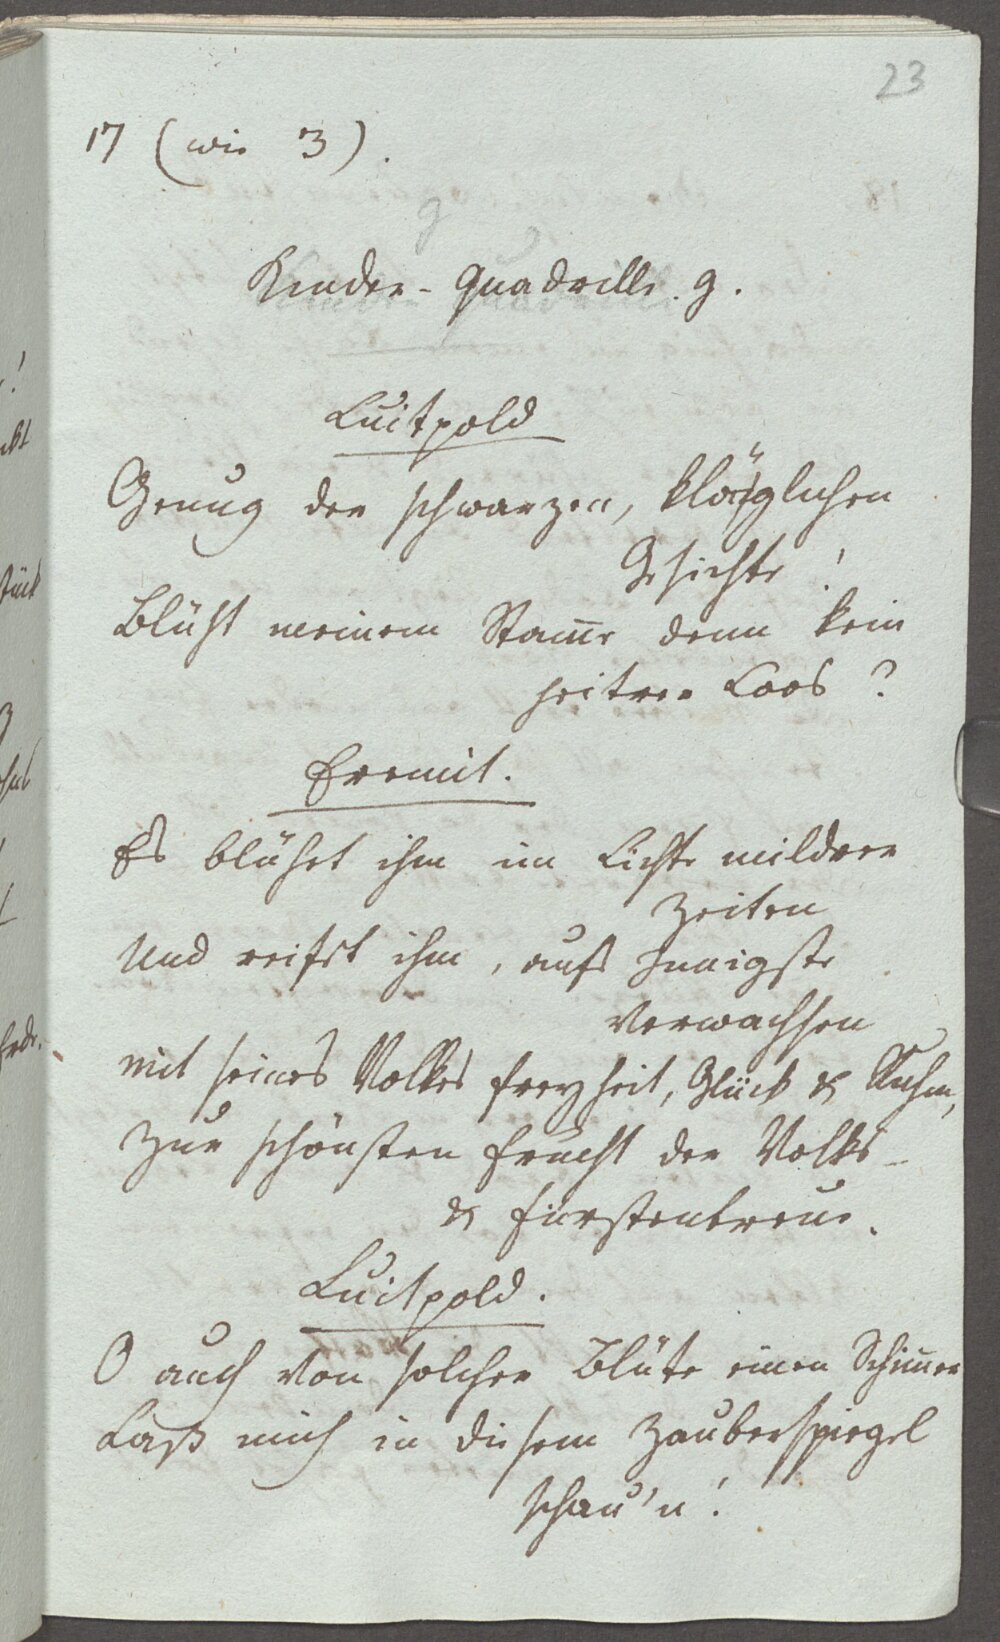 23
17 (wie 3).
g
Kinder-Quadrille. g.
Luitpold
Genug der schwarzen, kläglichen
Gesichte!
Blüht meinem Stam̅e denn kein
heitrer Loos?
Eremit.
Es blühet ihm im Lichte mildrer
Zeiten
Und reifet ihm, aufs Innigste
Verwachsen
mit seines Volkes Freyheit, Glück & Ruhm,
Zur schönsten Frucht der Volks-
& Fürstentreue.
Luitpold.
O auch von solcher Blüte einen Schim̅er
Laß mich in diesem Zauberspiegel
schau'n!